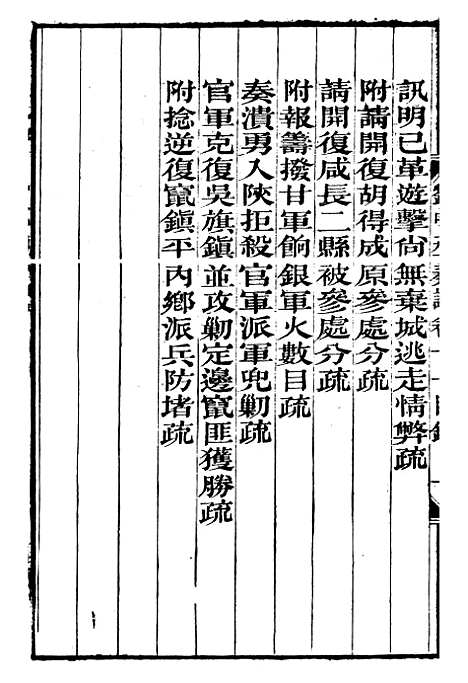 訊明已革遊擊尙無棄城逃走情弊疏
附請開復胡得成原參處分疏
請開復咸長二縣被參處分疏
附報籌撥甘軍餉銀軍火數目疏
奏潰勇入陝拒殺官軍派軍兜勦疏
官軍克復吳旗鎭並攻勦定邊竄匪獲勝疏
附捻逆復竄鎭平內鄉派兵防堵疏